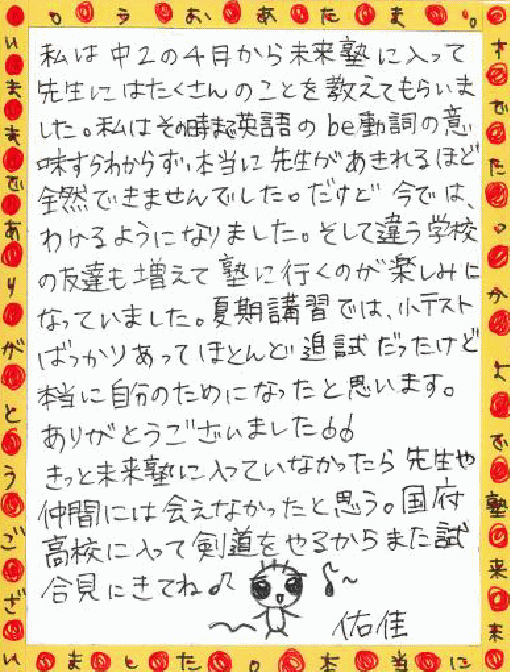 私は中2の4月から未来塾に入って
先生にはたくさんのことを教えてもらいま
した。私はその時まで英語のbe動詞の意
味すらわからず、本当に先生があきれるほど
全然できませんでした。だけど今では、
わかるようになりました。そして違う学校
の友達も増えて塾に行くのが楽しみに
なっていました。夏期講習では、小テスト
ばっかりあってほとんど追試だったけど
本当に自分のためになったと思います。
ありがとうございました
きっと未来塾に入っていなかったら先生や
仲間には会えなかったと思う。国府
高校に入って剣道をやるからまた試
合見にきてね♪
佑佳
いままでありがとうござ
いました。本当に
未来塾でよかったです
。またあおう。